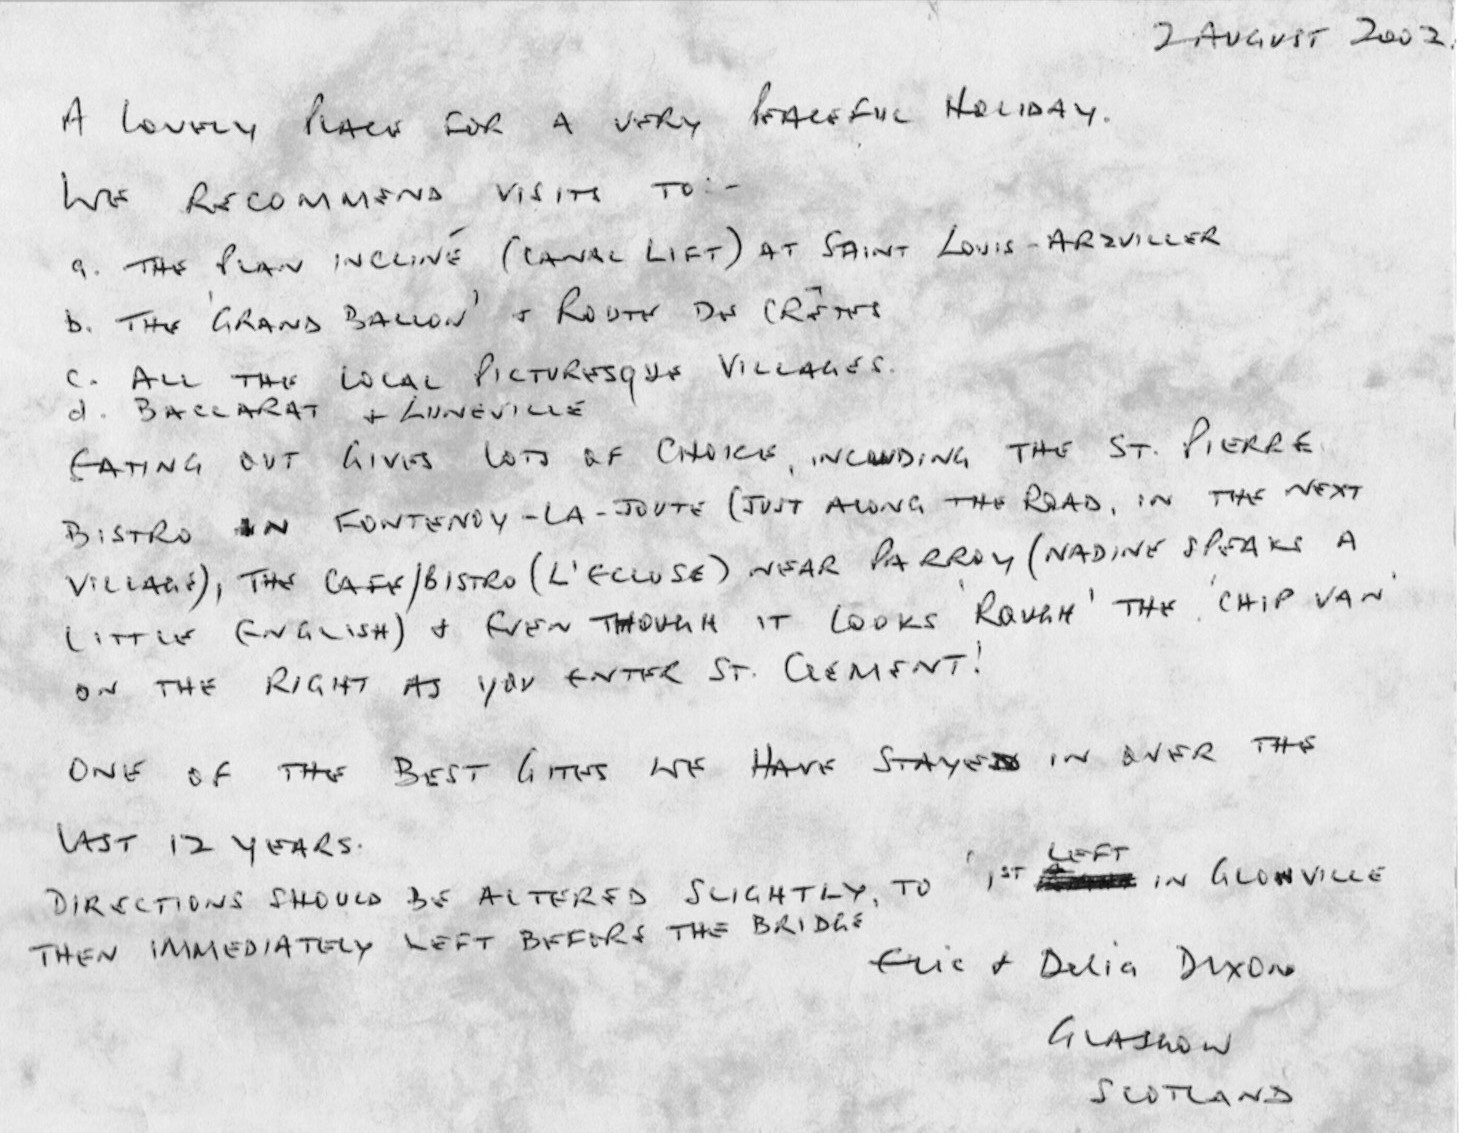 2 AUGUST 2002.
A LOVELY PLACE FOR A VERY PEACEFUL HOLIDAY.
WE RECOMMEND VISITS TO:-
a. THE PLAN INCLINÉ (CANAL LIFT) AT SAINT LOUIS-ARZVILLER
b. THE 'GRAND BALLON' + ROUTE DE CRÊTES
c. ALL THE LOCAL PICTURESQUE VILLAGES.
d. BACCARAT + LUNEVILLE
EATING OUT GIVES LOTS OF CHOICE, INCLUDING THE ST. PIERRE
BISTRO IN FONTENOY-LA-JOUTE (JUST ALONG THE ROAD, IN THE NEXT
VILLAGE), THE CAFE/BISTRO (L'ECLUSE) NEAR PARROY (NADINE SPEAKS A
LITTLE ENGLISH) + EVEN THOUGH IT LOOKS 'ROUGH' THE 'CHIP VAN'
ON THE RIGHT AS YOU ENTER ST. CLEMENT!
ONE OF THE BEST GITES WE HAVE STAYED IN OVER THE
LAST 12 YEARS.
DIRECTIONS SHOULD BE ALTERED SLIGHTLY, TO '1ST LEFT IN GLONVILLE
THEN IMMEDIATELY LEFT BEFORE THE BRIDGE
Eric + Delia DIXON
GLASGOW
SCOTLAND